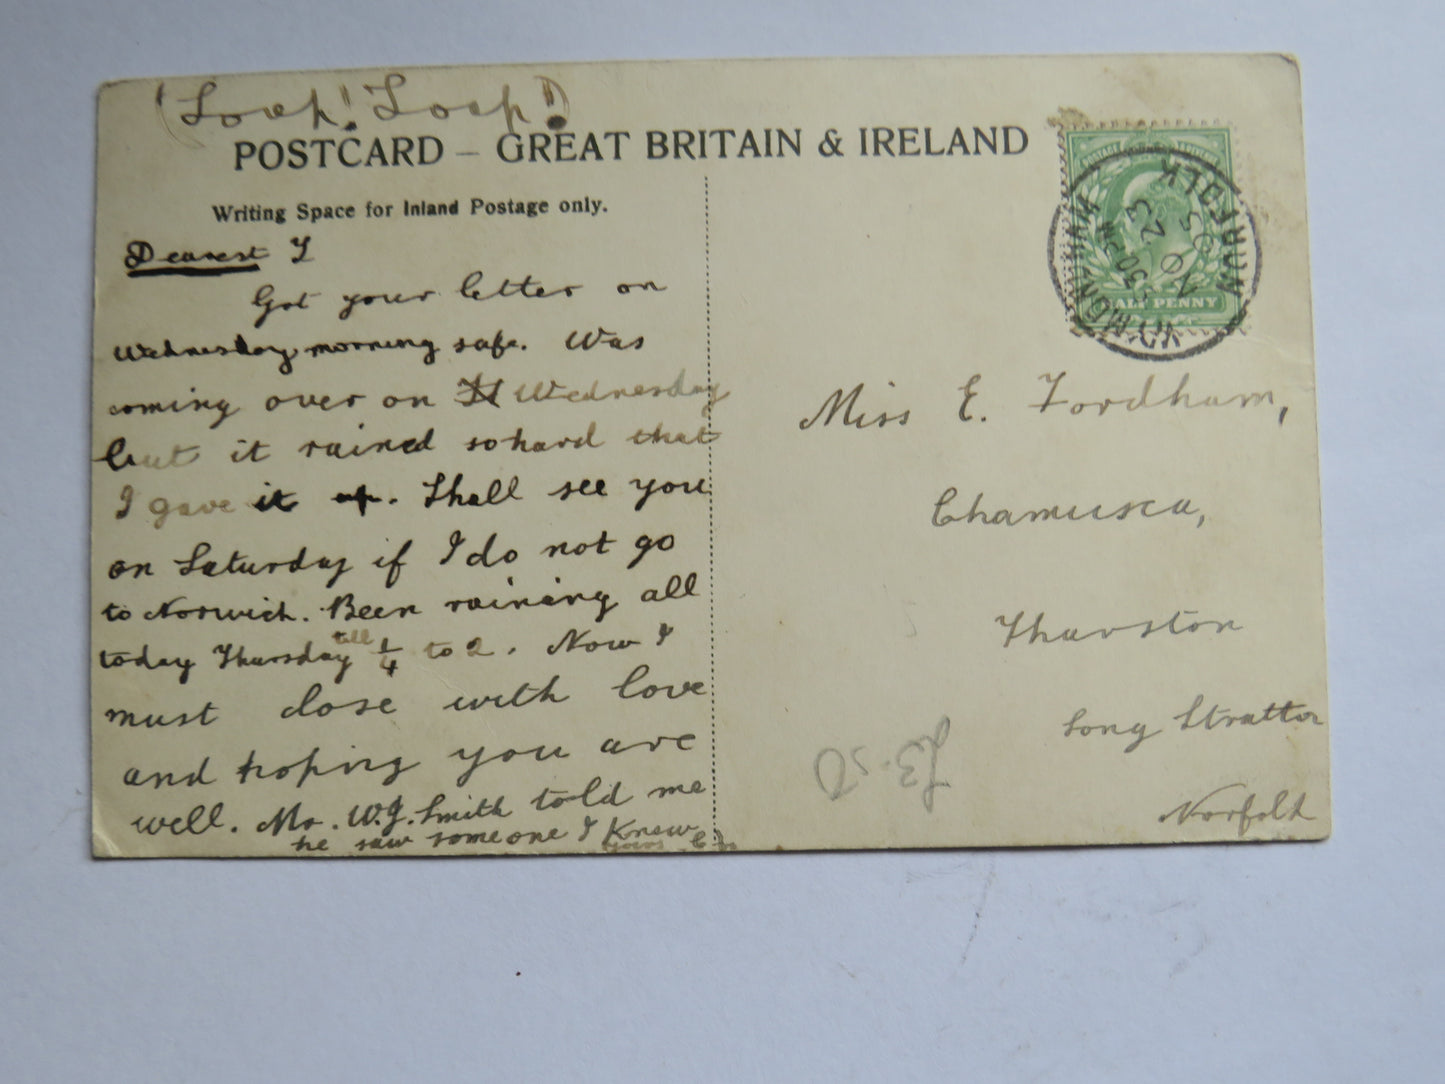 (Loop! Loop!)
POSTCARD – GREAT BRITAIN & IRELAND
Writing Space for Inland Postage only.
Dearest I
Got your letter on
Wednesday morning safe. Was
coming over on Wednesday
but it rained so hard that
I gave it up. Shall see you
on Saturday if I do not go
to Norwich. Been raining all
today Thursday till 1/4 to 2. Now I
must close with love
and hoping you are
well. Mr. W.J. Smith told me
he saw someone I Knew
yours
POSTAGE
HALF PENNY
WYMONDHAM
NORFOLK
30 PM
NO 23
05
Miss E. Fordham,
Chamusca,
Tharston
Long Stratton
Norfolk
£3.50